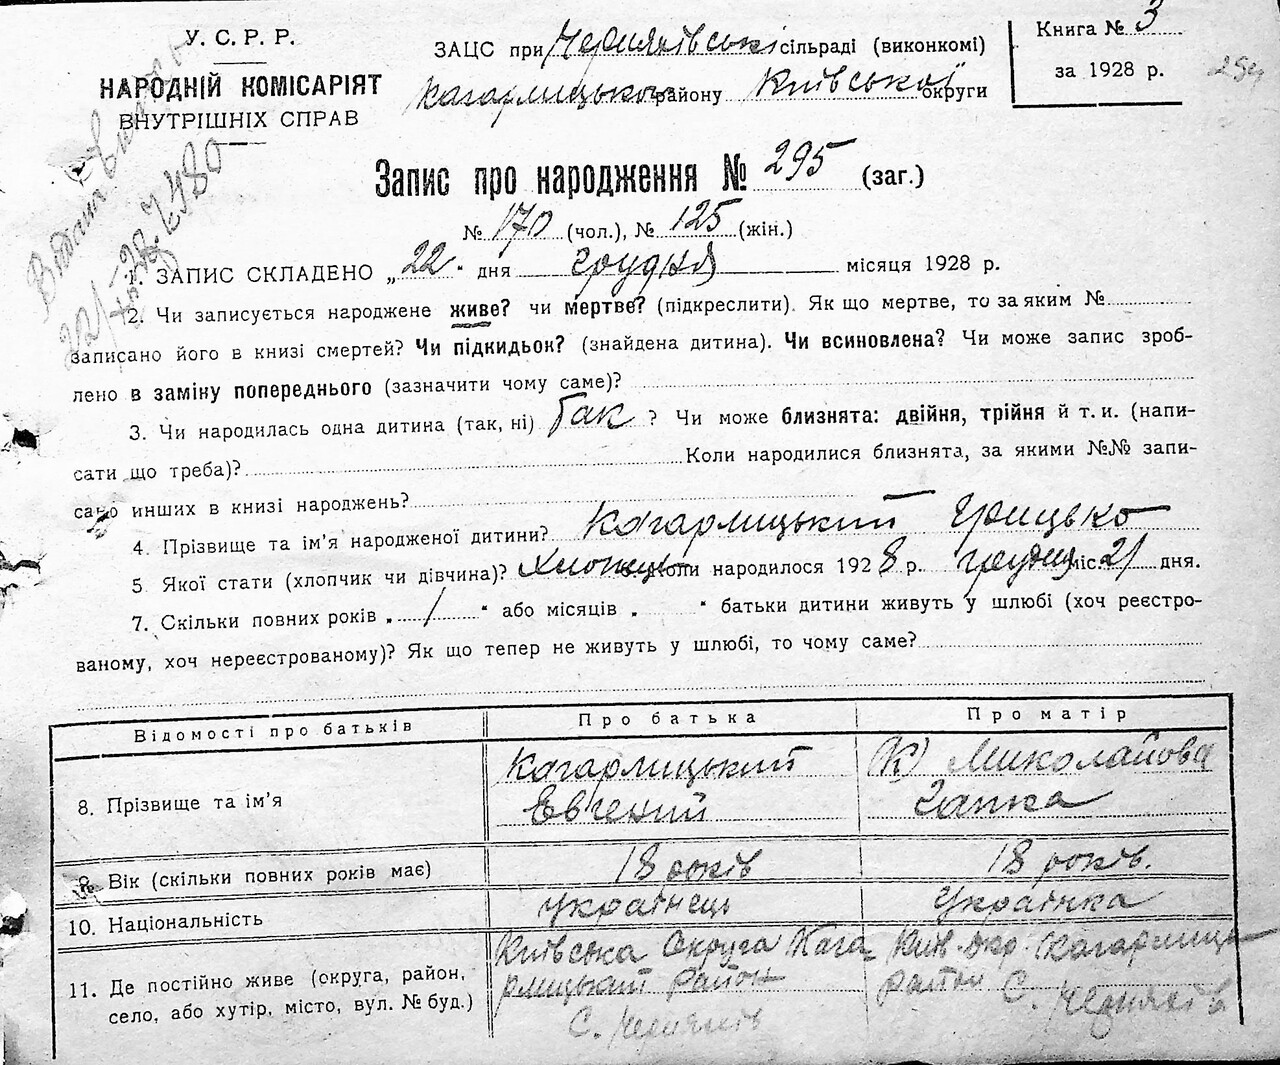 У. С. Р. Р.
НАРОДНІЙ КОМІСАРІЯТ
ВНУТРІШНІХ СПРАВ
ЗАЦС при Черняхівські сільраді (виконкомі)
Кагарлицького району Київської округи
Книга № 3
за 1928 р.
294
Запис про народження № 295 (заг.)
№ 170 (чол.), № 125 (жін.)
1. ЗАПИС СКЛАДЕНО „22" дня грудня місяця 1928 р.
2. Чи записується народжене живе? чи мертве? (підкреслити). Як що мертве, то за яким №
записано його в книзі смертей? Чи підкидьок? (знайдена дитина). Чи всиновлена? Чи може запис зроб-
лено в заміну попереднього (зазначити чому саме)?
3. Чи народилась одна дитина (так, ні) Так ? Чи може близнята: двійня, трійня й т. и. (напи-
сати що треба)? Коли народилися близнята, за якими №№ запи-
сано инших в книзі народжень?
4. Прізвище та ім'я народженої дитини? Кагарлицький Грицько
5 Якої стати (хлопчик чи дівчина)? Хлопець Коли народилося 1928 р. грудня міс. 21 дня.
7. Скільки повних років „ 1 " або місяців „ " батьки дитини живуть у шлюбі (хоч реєстро-
ваному, хоч нереєстрованому)? Як що тепер не живуть у шлюбі, то чому саме?
Відомості про батьків Про батька Про матір
8. Прізвище та ім'я Кагарлицький Евгений (К) Миколайова Гапка
9. Вік (скільки повних років має) 18 років 18 років.
10. Національність українець Українка
11. Де постійно живе (округа, район,
село, або хутір, місто, вул. № буд.)
Київська Округа Кага
рлицький район
с. Черняхів
Київ. окр. Кагарлицьк
район с. Черняхів